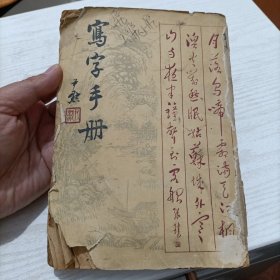 寫字手册
月落烏啼霜滿天江楓
漁火對愁眠姑蘇城外寒
山寺夜半鐘聲到客船